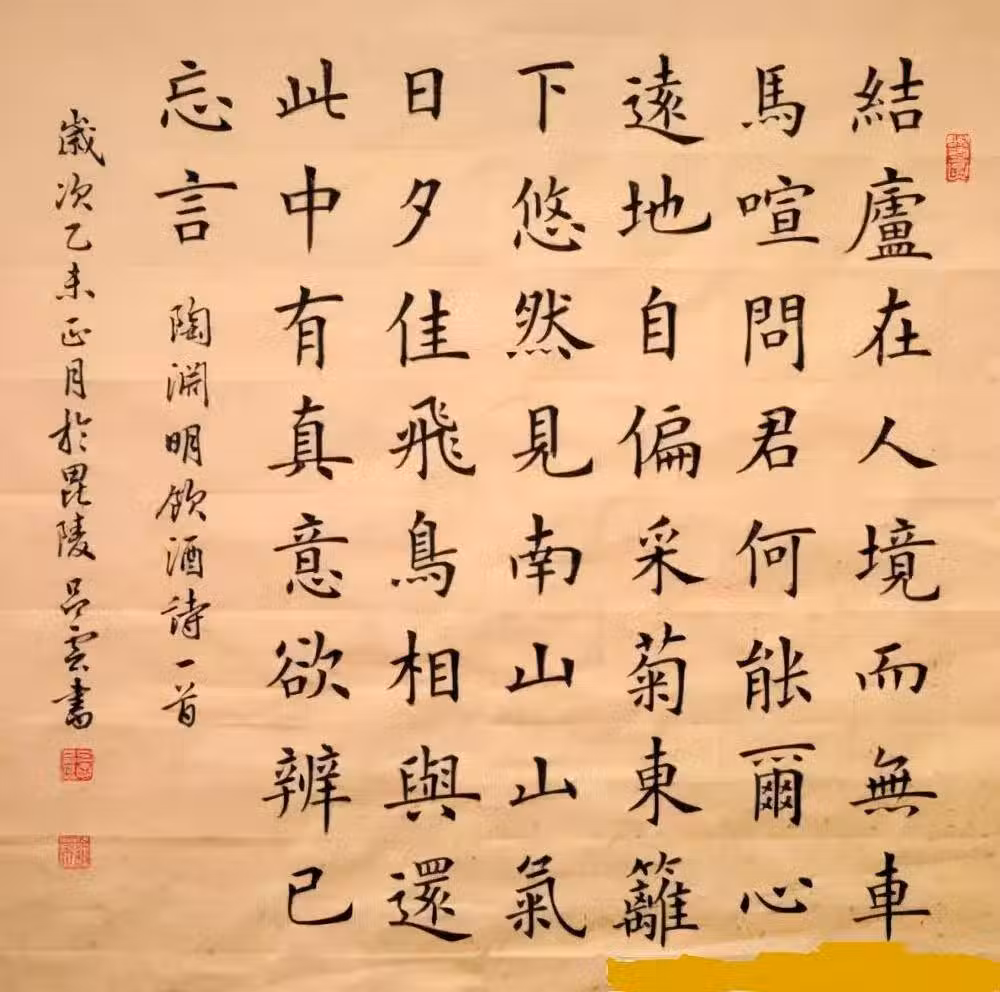 結廬在人境而無車
馬喧問君何能爾心
遠地自偏采菊東籬
下悠然見南山山氣
日夕佳飛鳥相與還
此中有真意欲辨已
忘言
陶淵明飲酒詩一首
歲次乙未正月於毘陵呂雲書